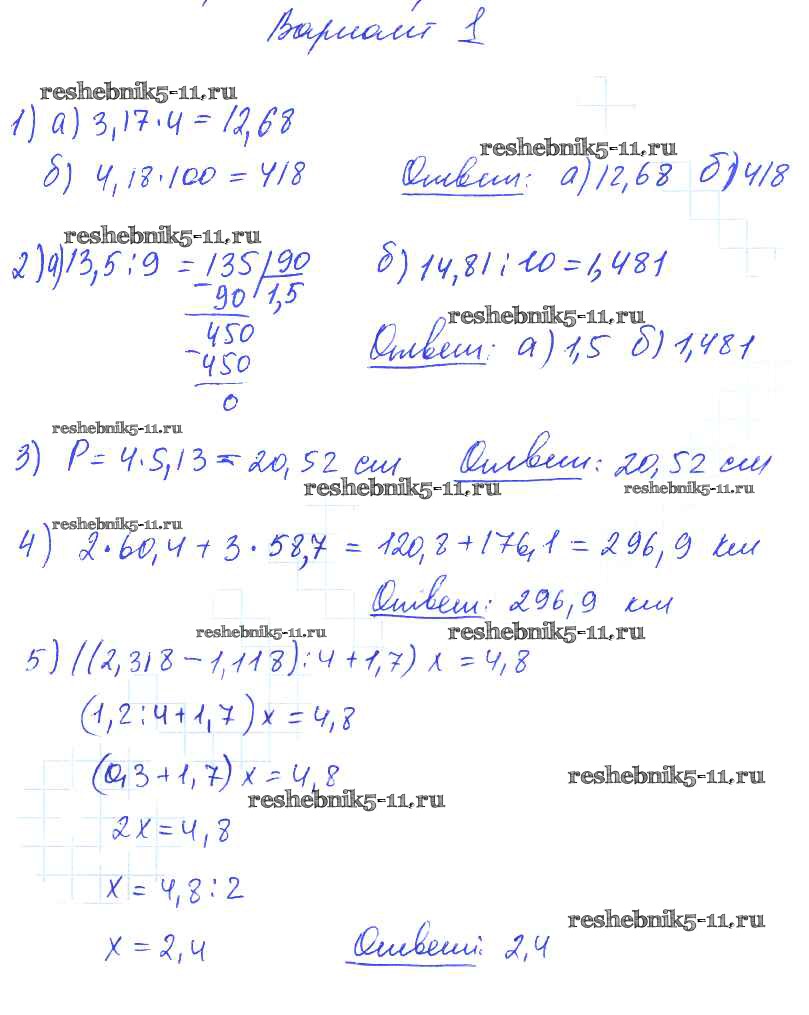 Вариант 1
reshebnik5-11.ru
1) а) 3,17·4 = 12,68
reshebnik5-11.ru
б) 4,18·100 = 418 Ответ: а) 12,68 б) 418
reshebnik5-11.ru
2) а) 13,5:9 = 135 | 90 б) 14,81:10 = 1,481
- 90 1,5
reshebnik5-11.ru
450
Ответ: а) 1,5 б) 1,481
- 450
0
reshebnik5-11.ru
3) P = 4·5,13 = 20,52 см Ответ: 20,52 см
reshebnik5-11.ru reshebnik5-11.ru
reshebnik5-11.ru
4) 2·60,4 + 3·58,7 = 120,8 + 176,1 = 296,9 км
Ответ: 296,9 км
reshebnik5-11.ru reshebnik5-11.ru
5) ((2,318 - 1,118):4 + 1,7) x = 4,8
(1,2:4 + 1,7) x = 4,8
(0,3 + 1,7) x = 4,8
reshebnik5-11.ru
reshebnik5-11.ru
2x = 4,8
x = 4,8:2
reshebnik5-11.ru
x = 2,4 Ответ: 2,4